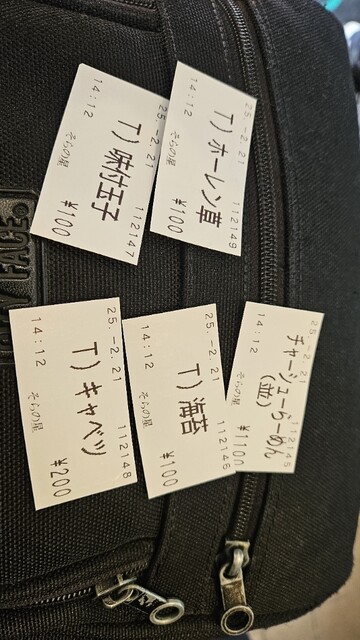 25.-2.21 112147
T)味付玉子
14:12 そらの星 ¥100
25.-2.21 112149
T)ホーレン草
14:12 そらの星 ¥100
25.-2.21 112148
T)キャベツ
14:12 そらの星 ¥200
25.-2.21 112146
T)海苔
14:12 そらの星 ¥100
25.-2.21 112145
チャーシューらーめん
(並)
14:12 そらの星 ¥1100
FACE